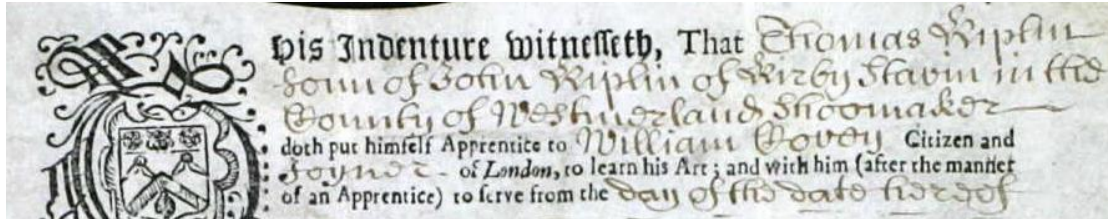 This Indenture witnesseth, That Thomas Kiplin
sonn of John Kiplin of Kirby Stavin in the
County of Westmerland Shoomaker
doth put himself Apprentice to William Covey Citizen and
Joyner of London, to learn his Art; and with him (after the manner
of an Apprentice) to serve from the day of the date hereof